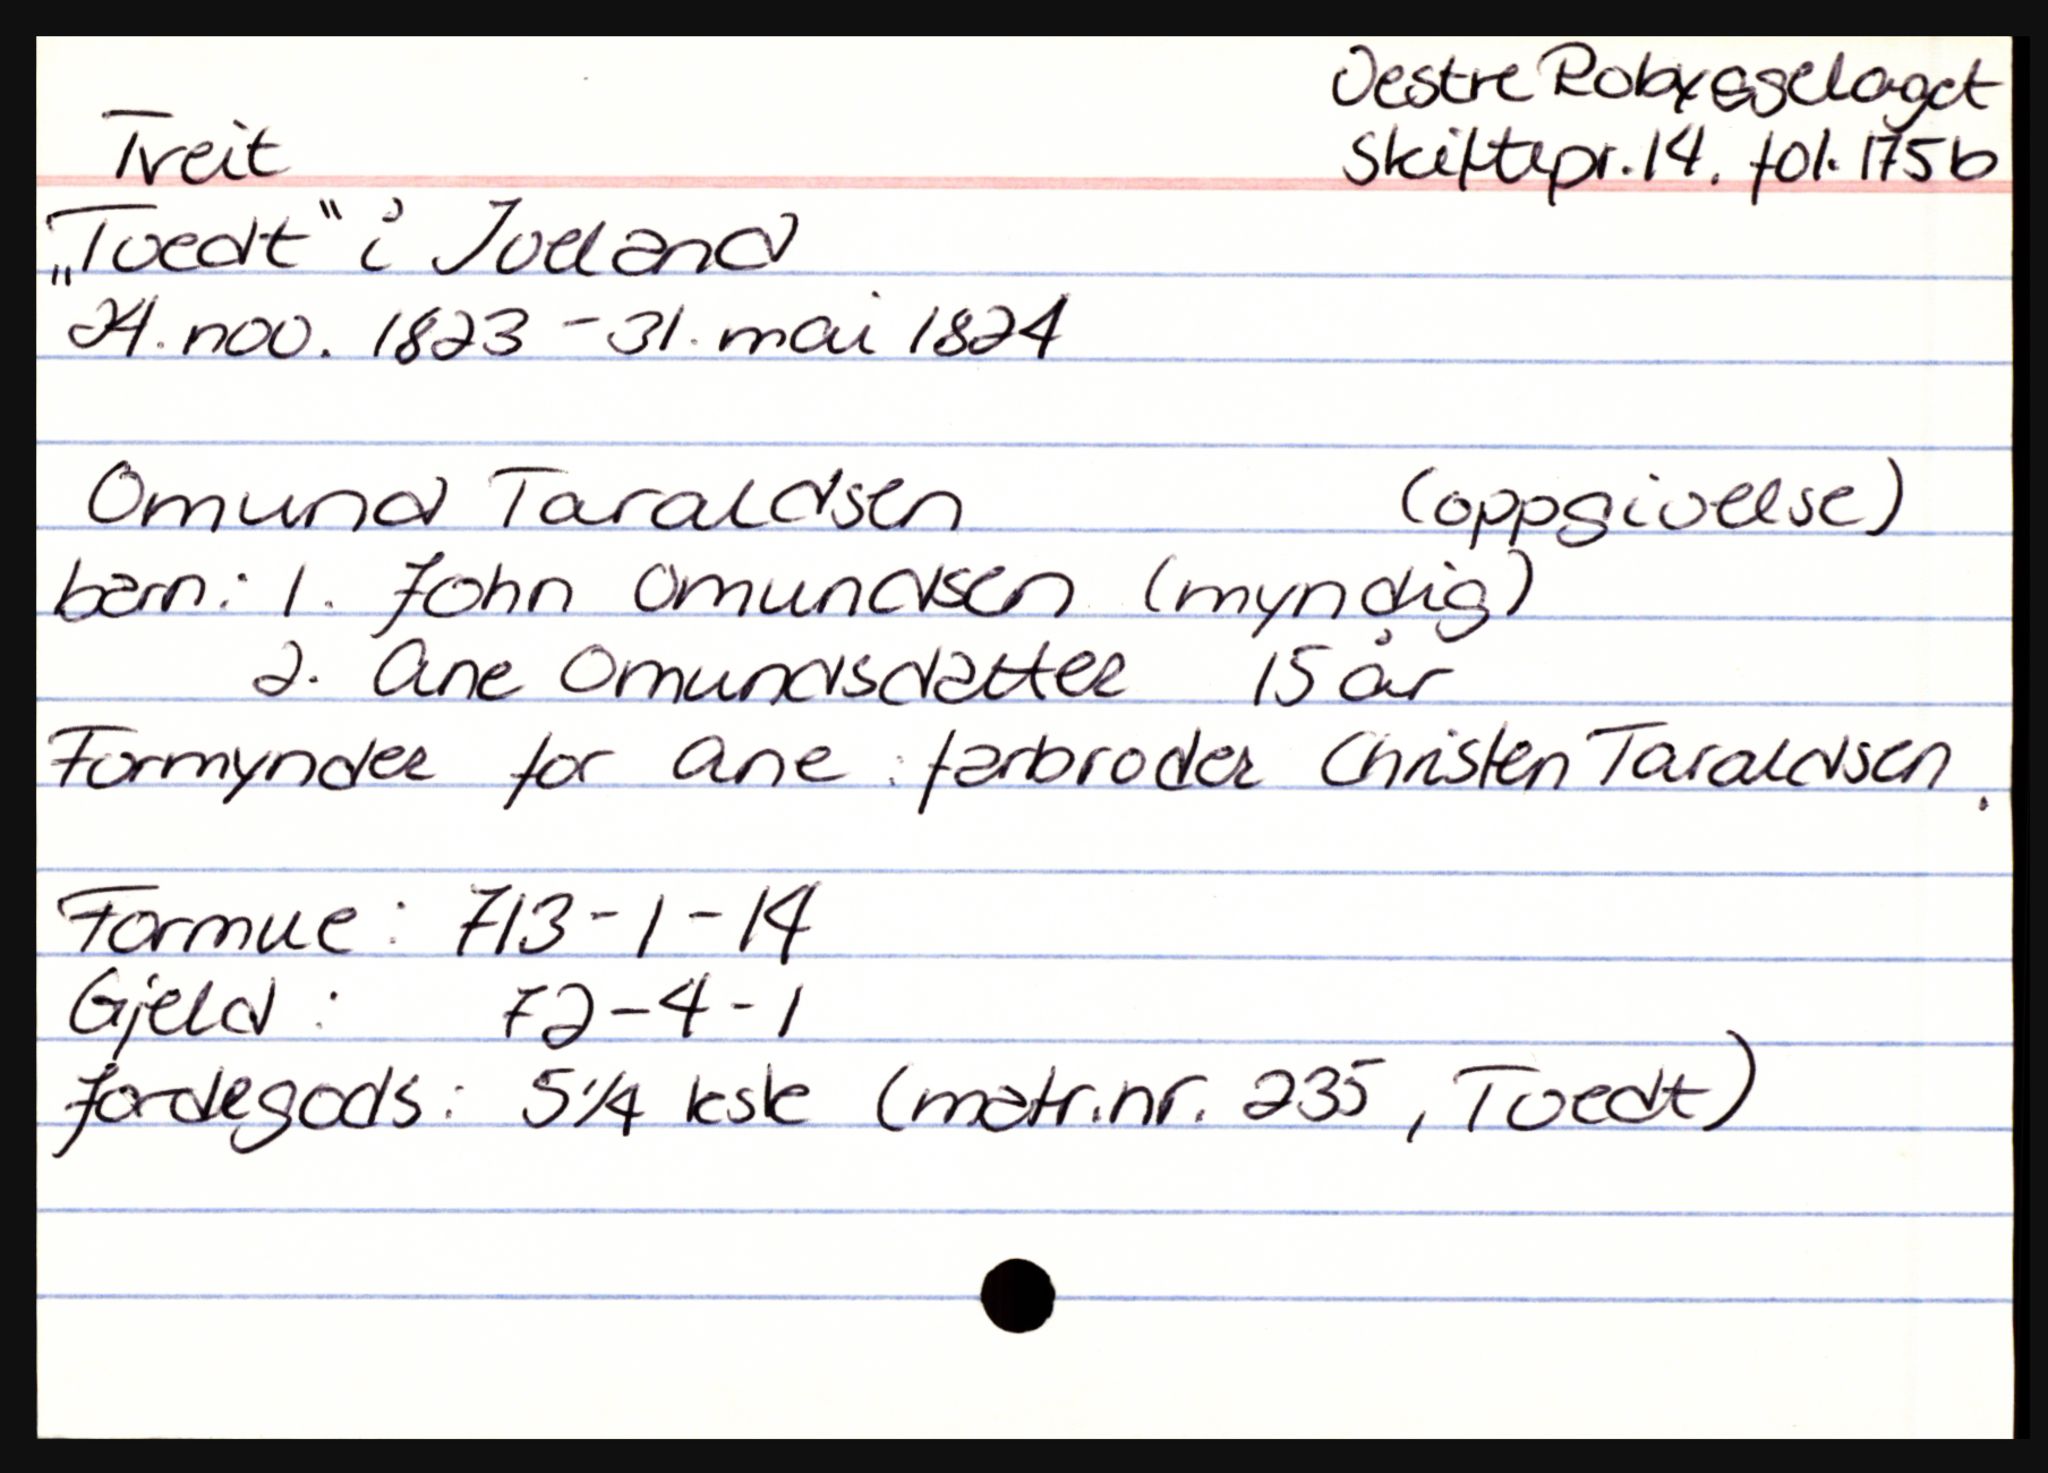 Vestre Robyggelaget
Treit
Skiftepr. 14. fol. 175b
„Tvedt“ i Iveland
24. nov. 1823 - 31. mai 1824
Omund Taraldsen (oppgivelse)
barn: 1. John Omundsen (myndig)
2. Ane Omundsdatter 15 år
Formynder for Ane: farbroder Christen Taraldsen.
Formue: 713-1-14
Gjeld: 72-4-1
Jordegods: 5 1/4 ksle (matr.nr. 235, Tvedt)